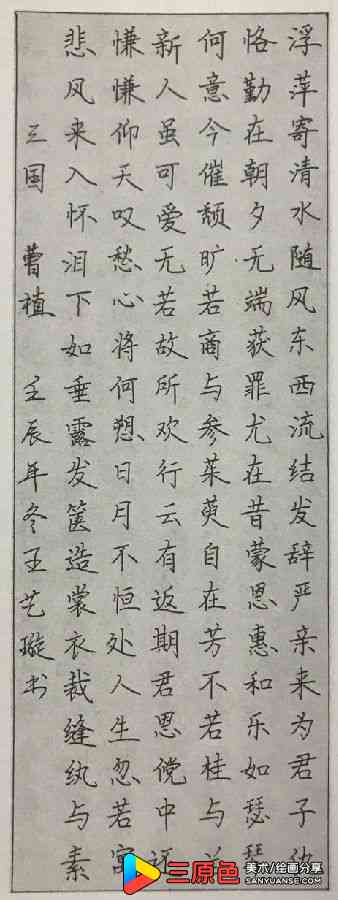 浮萍寄清水随风东西流结发辞严亲来为君子仇
恪勤在朝夕无端获罪尤在昔蒙恩惠和乐如瑟琴
何意今催颓旷若商与参茱萸自在芳不若桂与兰
新人虽可爱无若故所欢行云有返期君恩傥中还
慊慊仰天叹愁心将何愬日月不恒处人生忽若寓
悲风来入怀泪下如垂露发箧造裳衣裁缝纨与素
三国 曹植 壬辰年冬王艺璇书
三原色 美术/绘画分享
SANYUANSE.COM